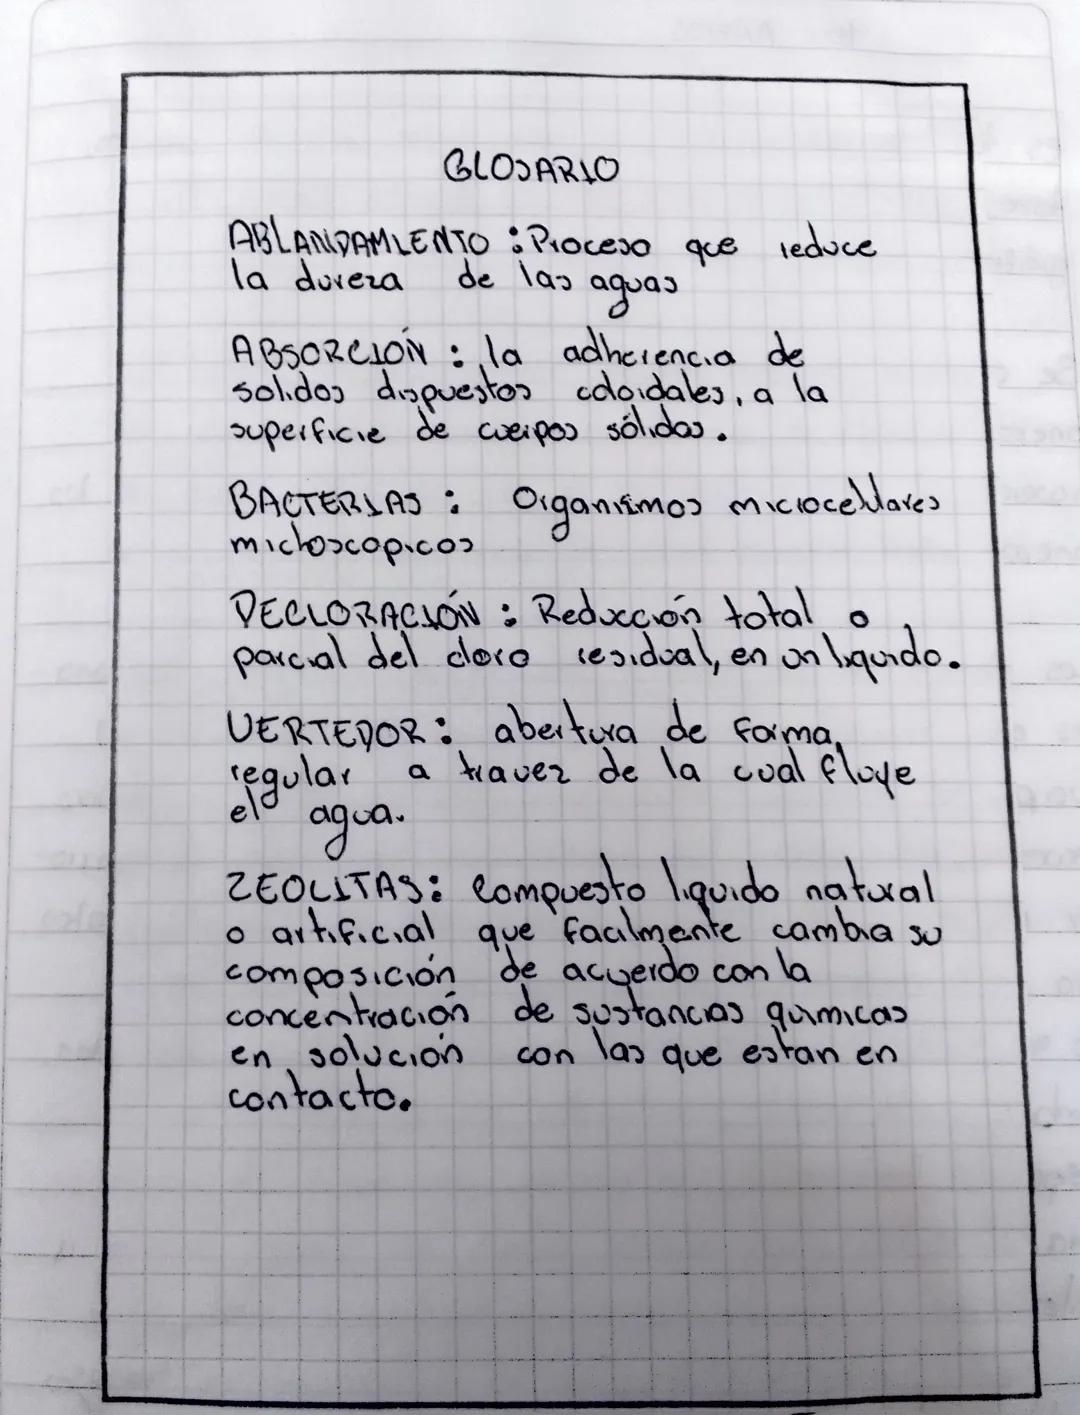 GLOSARIO
ABLANDAMIENTO : Proceso que reduce
la dureza de las aguas
ABSORCIÓN : la adherencia de
solidos dispuestos coloidales, a la
superficie de cuerpos sólidos.
BACTERIAS : Organismos microcelulares
microscopicos
DECLORACIÓN : Reducción total o
parcial del cloro residual, en un líquido.
VERTEDOR : abertura de forma,
regular a travez de la cual fluye
el agua.
ZEOLITAS: Compuesto liquido natural
o artificial que facilmente cambia su
composición de acuerdo con la
concentración de sustancias quimicas
en solución con las que estan en
contacto.